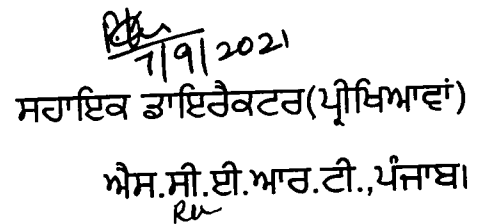 7/9/2021
ਸਹਾਇਕ ਡਾਇਰੈਕਟਰ(ਪ੍ਰੀਖਿਆਵਾਂ)
ਐਸ.ਸੀ.ਈ.ਆਰ.ਟੀ.,ਪੰਜਾਬ।